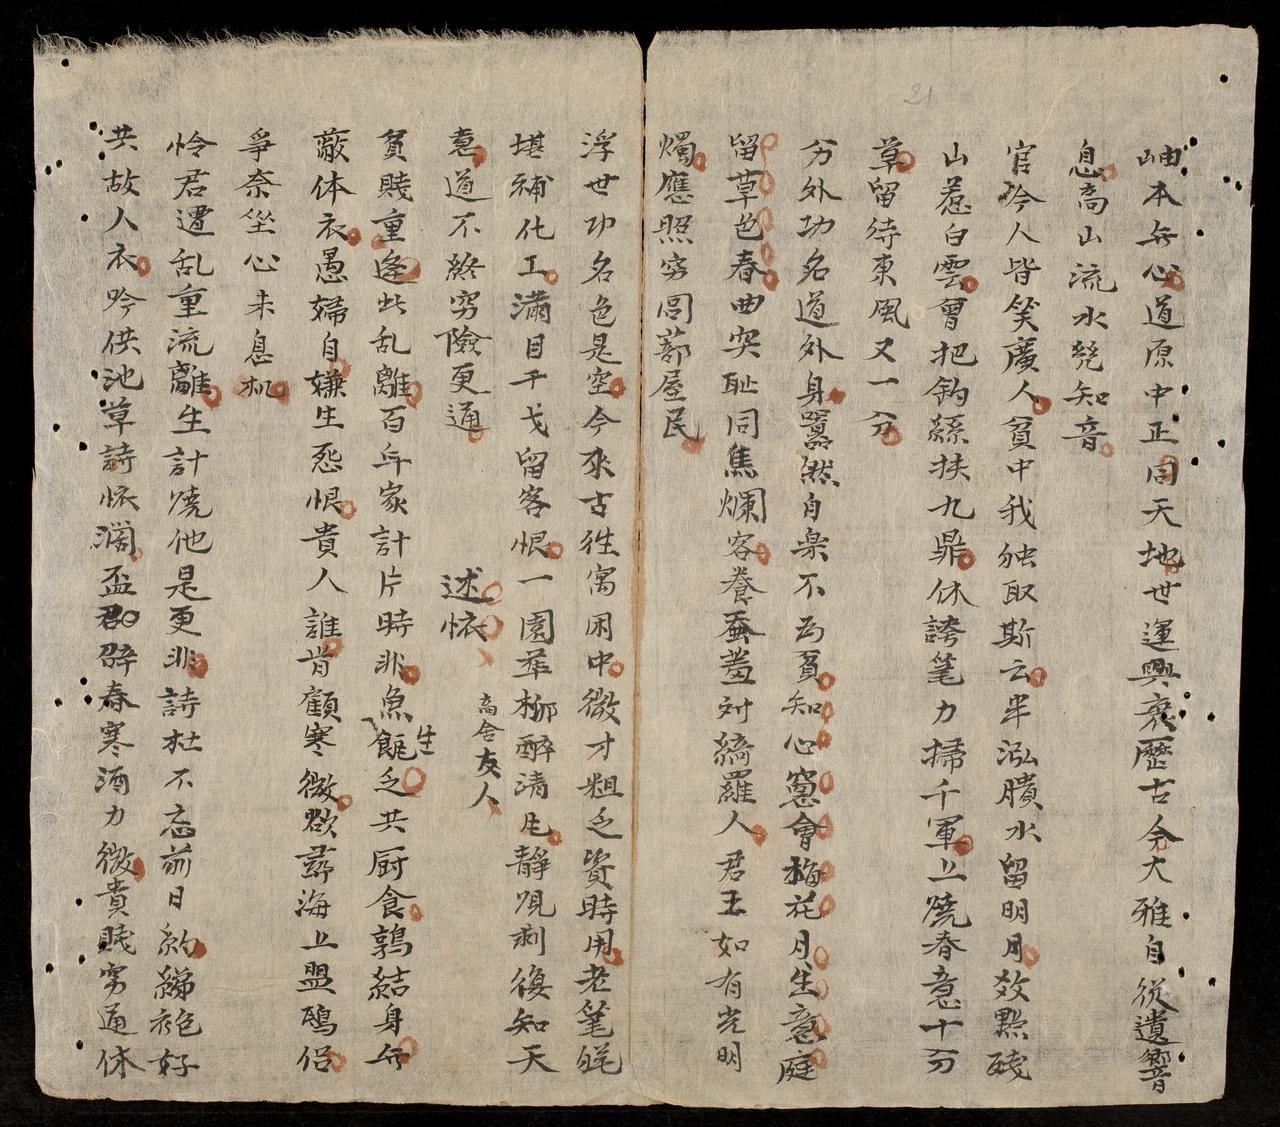 岫本無心道原中正同天地世運興衰歷古今大雅自從遺響
息高山流水競知音
官吟人皆笑廣人貧中我独取斯云半泓賸水留明月数點残
山惹白雲曾把釣絲扶九鼎休誇笔力掃千軍上燒春意十分
草留待東風又一分
分外功名道外身囂然自楽不为貧知心窓會梅花月生意庭
留草色春曲突恥同焦爛客養蚕羞対綺羅人君王如有光明
燭應照窮閻蔀屋民
浮世功名色是空今來古往寓困中微才粗乏資時用老筆能
堪補化工滿目干戈留客恨一園華柳醉清 靜覌剥復知天
意道不終窮險更通
述懐 高舍友人
貧賎重逢此乱離百年家計片時非魚 生乏共厨食鶉結身無
蔽体衣愚婦自嫌生怨恨貴人誰肯顧寒微欲尋海上盟鴎侣
爭奈坐心未息机
怜君遭乱重流離生計燒他是更非詩社不忘前日約綈袍好
共故人衣吟供池草詩懐濶盃 辟春寒酒力微貴賎窮通休